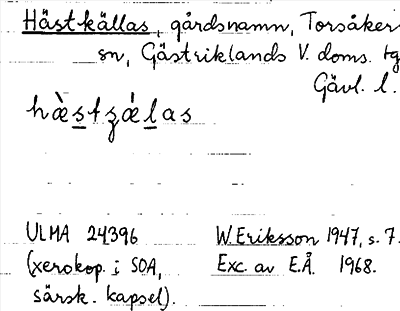 Hästkällas, gårdsnamn, Torsåker
sn, Gästriklands V. doms. tg
Gävl. l.
hæ̀s̲tʒǽl̲as
ULMA 24396
(xerokop. i SOA,
särsk. kapsel).
W. Eriksson 1947, s. 7.
Exc. av E.Å. 1968.